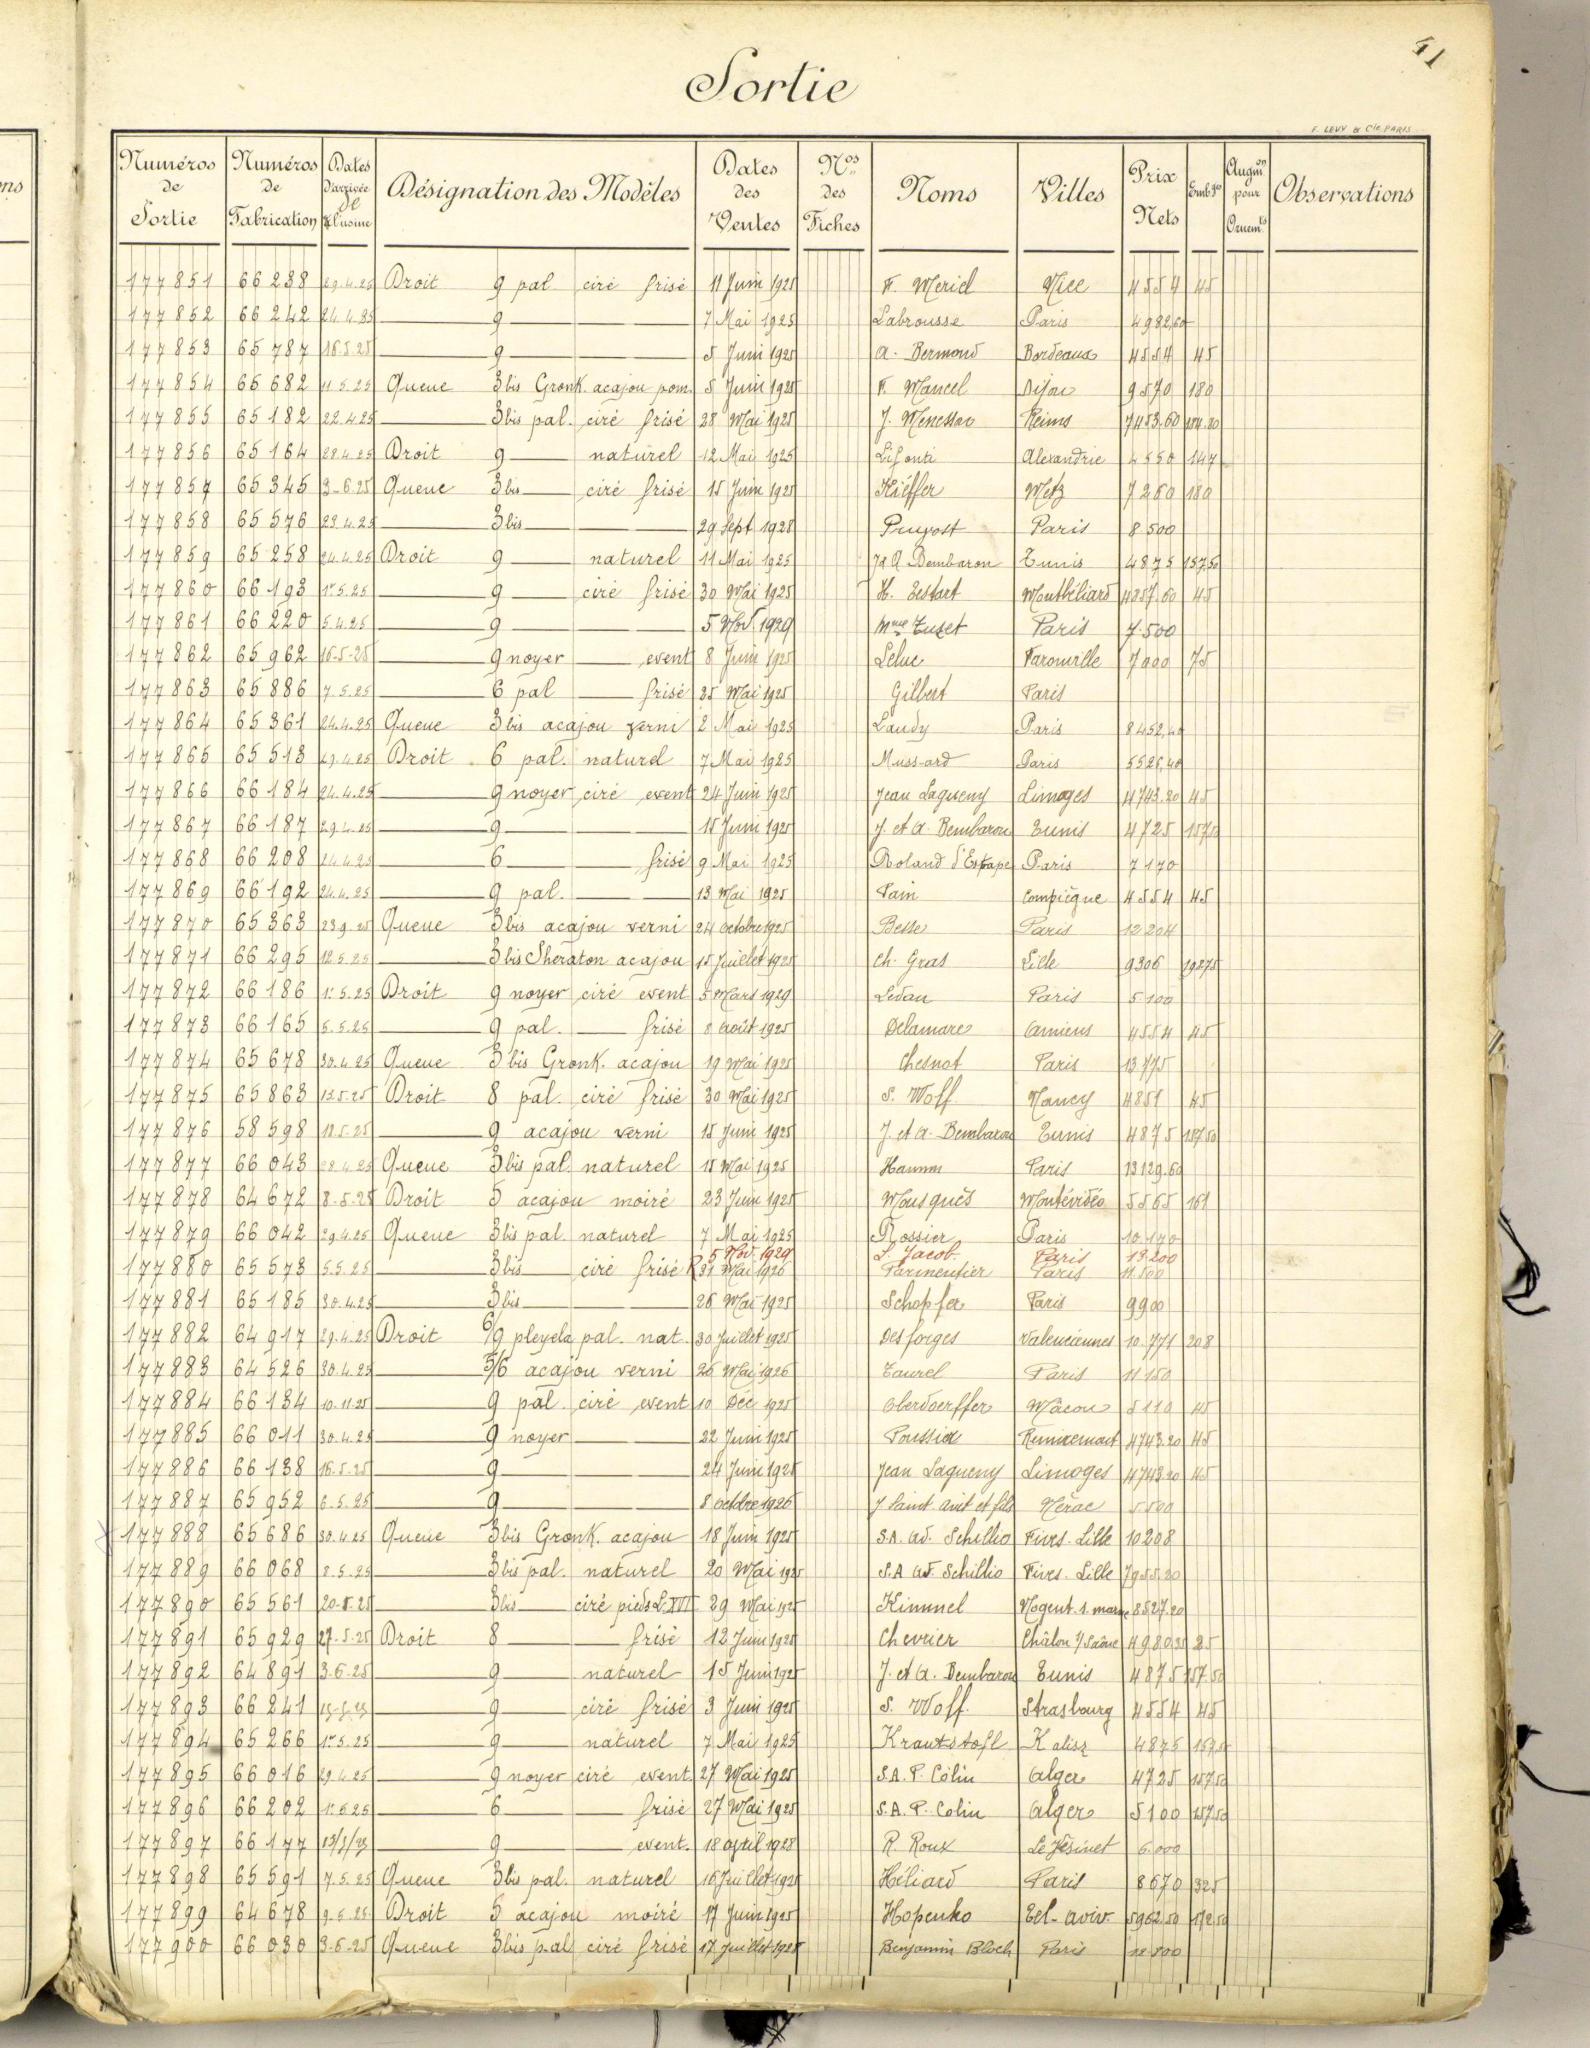 41
Sortie
F. LEVY & Cie PARIS
Numéros de Sortie | Numéros de Fabrication | Dates d'arrivée de l'usine | Désignation des Modèles | Dates des Ventes | Nos des Fiches | Noms | Villes | Prix Nets | Embge | Augmon pour Ornemts | Observations
177851 66238 29.4.25 Droit 9 pal ciré frisé 11 Juin 1925 F. Meriel Nice 4554 45
177852 66242 24.4.25 — 9 — — — 7 Mai 1925 Labrousse Paris 4982,60
177853 65787 16.5.25 — 9 — — — 5 Juin 1925 A. Bermond Bordeaux 4554 45
177854 65682 11.5.25 Queue 3bis Gronk. acajou pom. 5 Juin 1925 F. Mancel Dijon 9570 180
177855 65182 22.4.25 — 3bis pal. ciré frisé 28 Mai 1925 J. Mennesson Reims 7453.60
177856 65164 28.4.25 Droit 9 — naturel 12 Mai 1925 Lifonti Alexandrie 4550 147
177857 65345 3-6.25 Queue 3bis — ciré frisé 15 Juin 1925 Kieffer Metz 7260 180
177858 65576 23.4.25 — 3bis — — — 29 Sept 1928 Pruvost Paris 8500
177859 65258 24.4.25 Droit 9 — naturel 11 Mai 1925 J & A Bembaron Tunis 4875 157,50
177860 66193 1er.5.25 — 9 — ciré frisé 30 Mai 1925 H. Testart Montbéliard 4857.60 45
177861 66220 5.4.25 — 9 — — — 5 Nov. 1929 Mme Tuzet Paris 7.500
177862 65962 16-5-25 — 9 noyer — event 8 Juin 1925 Leluc 7000 75
177863 65886 7.5.25 — 6 pal — frisé 25 Mai 1925 Gilbert Paris
177864 65361 24.4.25 Queue 3bis acajou verni 2 Mai 1925 Laudy Paris 8452,40
177865 65513 29.4.25 Droit 6 pal. naturel 7 Mai 1925 Mussard Paris 5526,40
177866 66184 24.4.25 — 9 noyer ciré event 24 Juin 1925 Jean Lagueny Limoges 4743.20 45
177867 66187 29.4.25 — 9 — — — 15 Juin 1925 J. et A. Bembaron Tunis 4725 157.50
177868 66208 24.4.25 — 6 — — frisé 9 Mai 1925 Roland d'Estape Paris 7170
177869 66192 24.4.25 — 9 pal. — — 13 Mai 1925 Pain Compiègne 4554 45
177870 65363 23.9.25 Queue 3bis acajou verni 24 octobre 1925 Besse Paris 12204
177871 66295 12.5.25 — 3bis Sheraton acajou 15 Juillet 1925 Ch. Gras Lille 9306 192.75
177872 66186 1er.5.25 Droit 9 noyer ciré event 5 Mars 1929 Ledau Paris 5.100
177873 66165 5.5.25 — 9 pal. — frisé 8 août 1925 Delamare Amiens 4554 45
177874 65678 30.4.25 Queue 3bis Gronk. acajou 19 Mai 1925 Chesnot Paris 13775
177875 65863 12.5.25 Droit 8 pal. ciré frisé 30 Mai 1925 S. Wolf Nancy 4851 45
177876 58598 18.5-25 — 9 acajou verni 15 Juin 1925 J. et A. Bembaron Tunis 4875 157.50
177877 66043 28.4.25 Queue 3bis pal. naturel 15 Mai 1925 Hamm Paris 13129.60
177878 64672 8-5-25 Droit 5 acajou moiré 23 Juin 1925 Mousquès Montévidéo 5565 161
177879 66042 29.4.25 Queue 3bis pal. naturel 7 Mai 1925 Rossier Paris 10.170
5 Nov. 1929 L. Jacob. Paris 13.200
177880 65573 5.5.25 — 3bis — ciré frisé R 31 Mai 1926 Parmentier Paris 11.500
177881 65185 30.4.25 — 3bis — — — 26 Mai 1925 Schopfer Paris 9900
177882 64917 29.4.25 Droit 6/9 pleyela pal. nat. 30 Juillet 1925 Desforges Valenciennes 10.771 208
177883 64526 30.4.25 — 5/6 acajou verni 26 Mai 1926 Taurel Paris 11150
177884 66134 10.11.25 — 9 pal. ciré event 10 Déc 1925 Oberdoerffer Mâcon 5110 45
177885 66011 30.4.25 — 9 noyer — — 22 Juin 1925 Remiremont 4743.20 45
177886 66138 16.5.25 — 9 — — — 24 Juin 1925 Jean Lagueny Limoges 4743.20 45
177887 65952 6.5.25 — 9 — — — 8 octobre 1926 J Saint avit et fils Nérac 5500
177888 65686 30.4.25 Queue 3bis Gronk. acajou 18 Juin 1925 S.A. Ad. Schillio Fives-Lille 10208
177889 66068 8.5.25 — 3bis pal. naturel 20 Mai 1925 S.A Ad. Schillio Fives-Lille 7955.20
177890 65561 20.5.25 — 3bis — ciré pieds L. XVI 29 Mai 1925 Kimmel Nogent s. marne 8527.20
177891 65929 27.5.25 Droit 8 — — frisé 12 Juin 1925 Chevrier Châlon s/Saône 4980.35 25
177892 64891 3-6-25 — 9 — naturel 15 Juin 1925 J. et A. Bembaron Tunis 4875 157.50
177893 66241 — 9 — ciré frisé 3 Juin 1925 S. Wolf. Strasbourg 4554 45
177894 65266 1er.5.25 — 9 — naturel 7 Mai 1925 Krautstofl Kalisz 4875 157.50
177895 66016 29.4.25 — 9 noyer ciré event. 27 Mai 1925 S.A. P. Colin Alger 4725 157.50
177896 66202 — 6 — — frisé 27 Mai 1925 S.A. P. Colin Alger 5100 157.50
177897 66177 — 9 — — event. 18 avril 1928 R. Roux Le Vésinet 6.000
177898 65591 7.5.25 Queue 3bis pal. naturel 16 Juillet 1925 Héliard Paris 8670 325
177899 64678 9.5.25 Droit 5 acajou moiré 17 Juin 1925 Hopenko Tel-aviv. 5962.50 172.50
177900 66030 3-6-25 Queue 3bis pal ciré frisé 17 Juillet 1925 Benjamin Bloch Paris